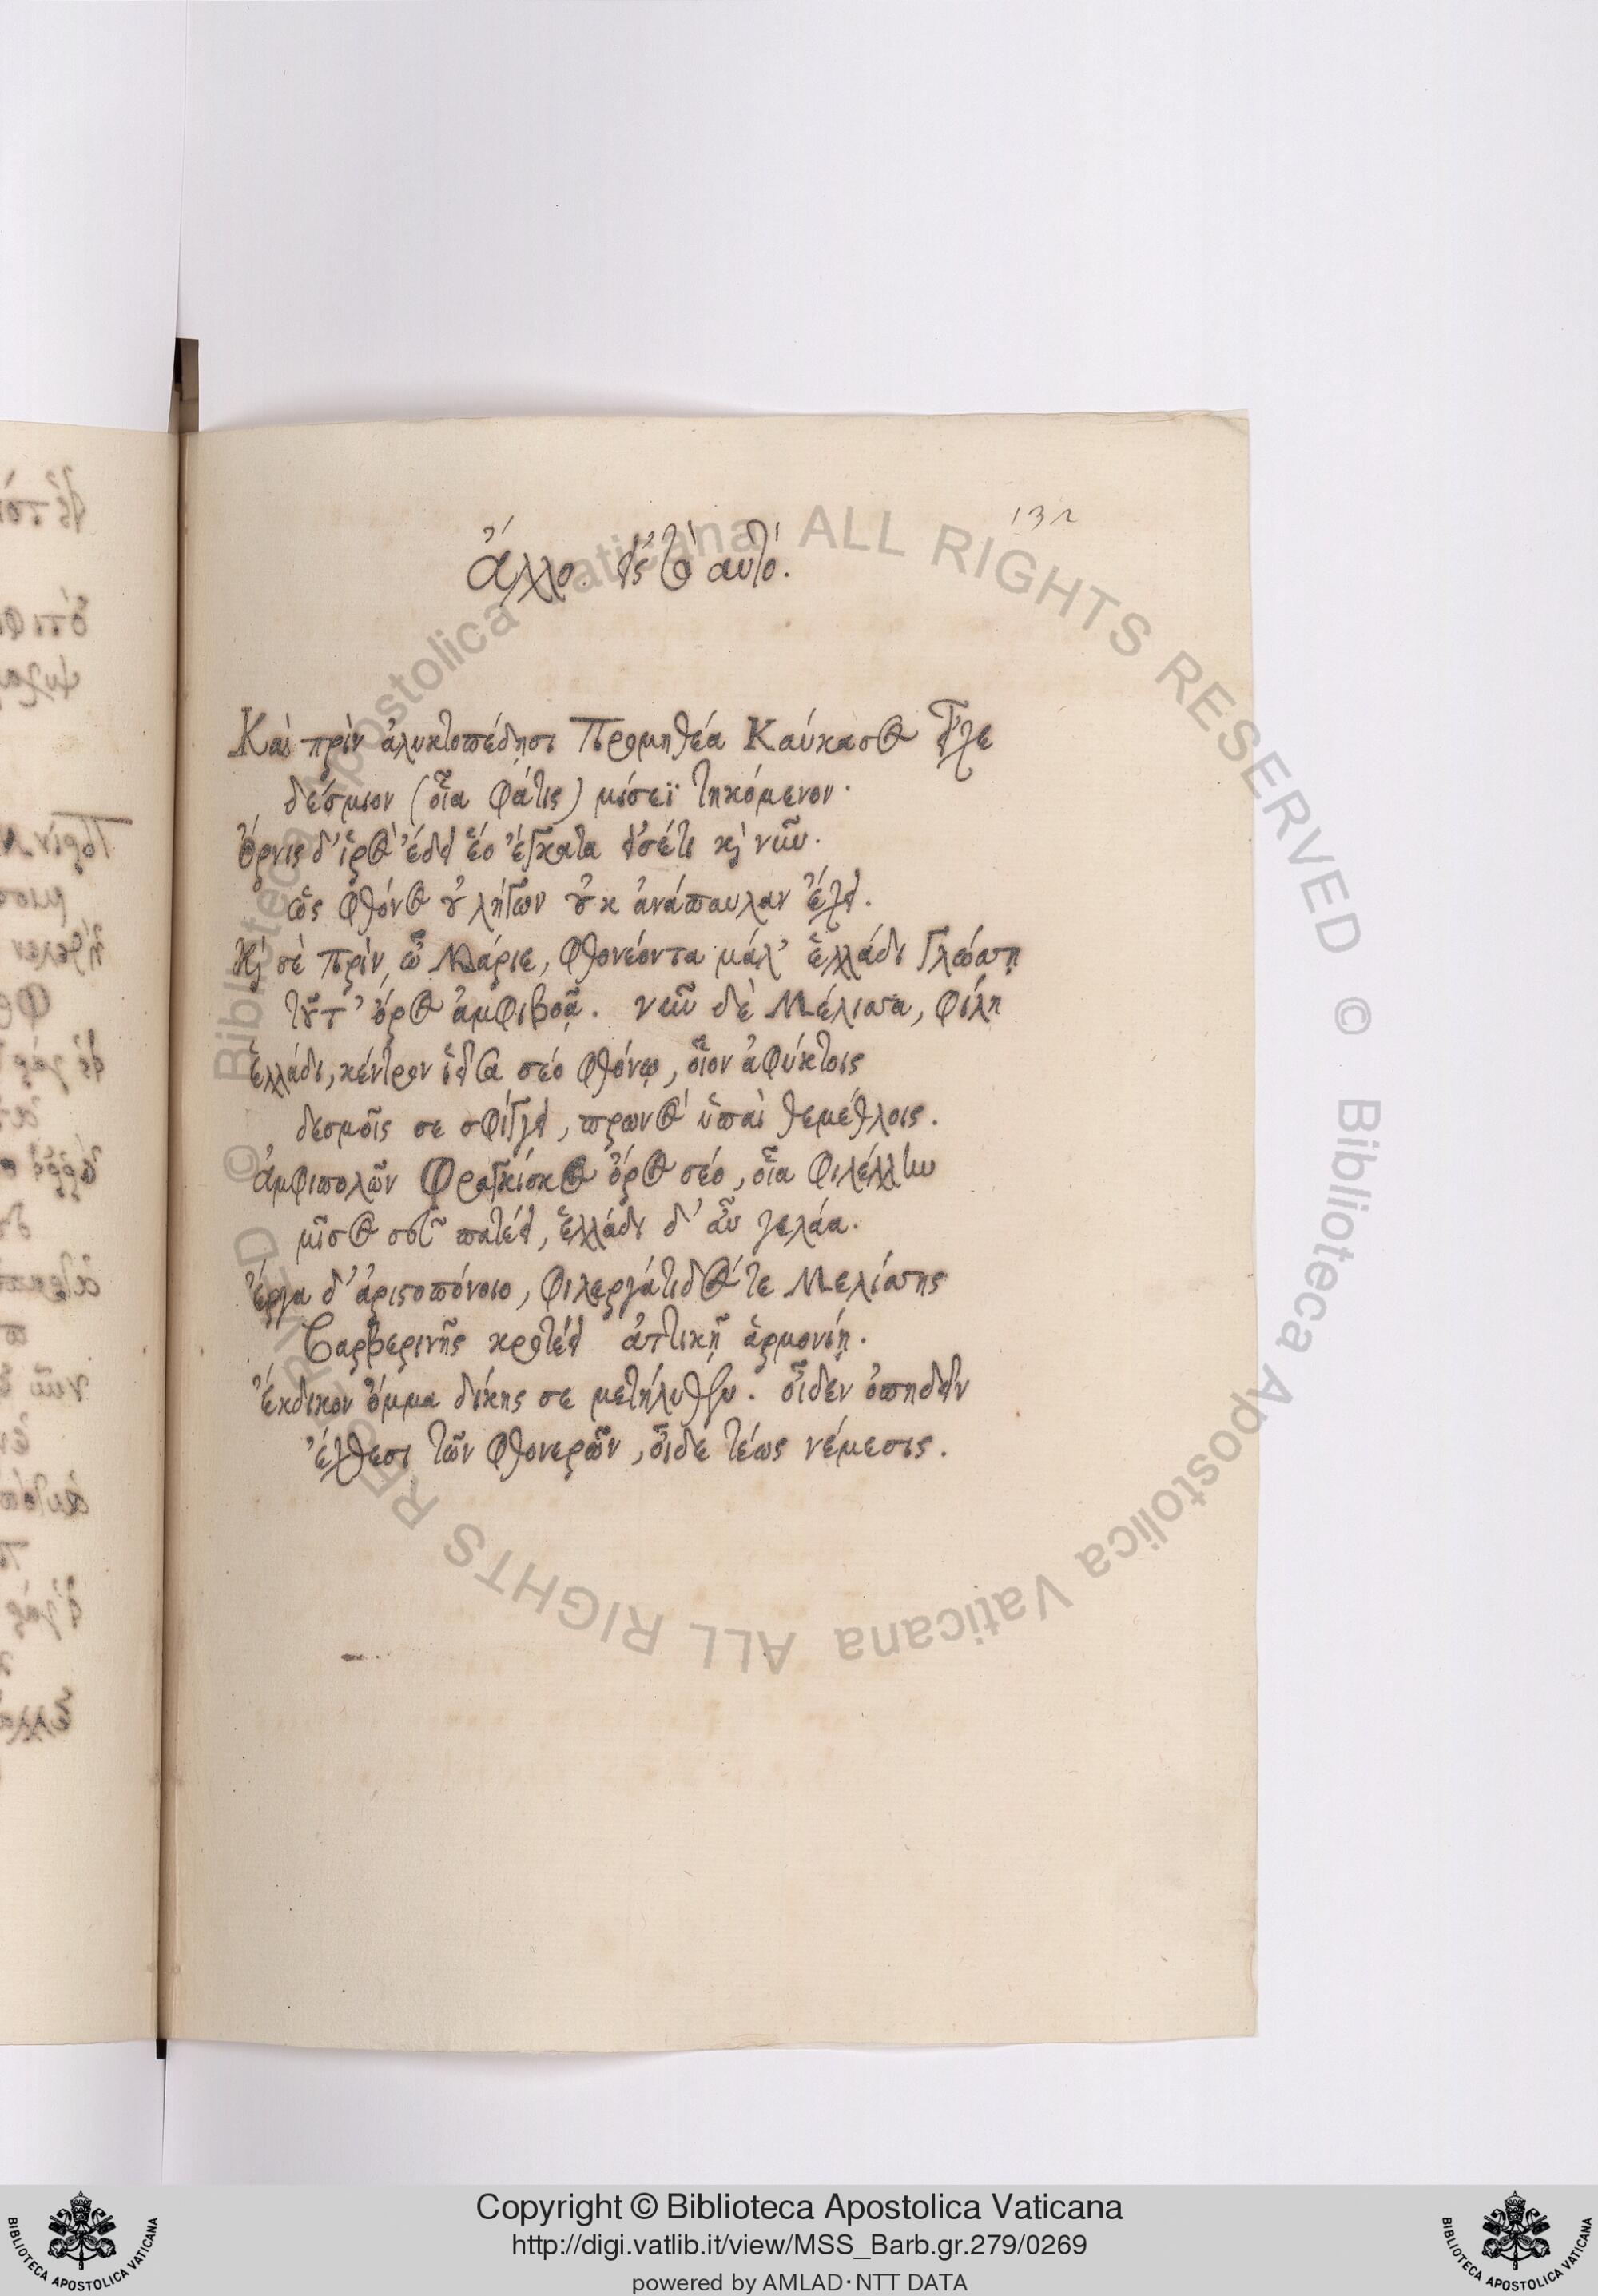 132
Ἄλλο εἰς τὸ αὐτό.
Καὶ πρὶν ἀλυκτοπέδῃσι Προμηθέα Καύκασος εἶχε
δέσμιον (οἷα φάτις) μίσεϊ τηκόμενον.
Ὄρνις δ' ἱρὸς ἔδει ἑο ἔγκατα εἰσέτι καὶ νῦν.
ὣς φθόνος οὐ λήγων οὐκ ἀνάπαυλαν ἔχει.
Καὶ σὲ πρίν, ὦ Μάριε, φθονέοντα μάλ' ἑλλάδι γλώσσῃ
τοῦτ' ὄρος ἀμφιβοᾷ. νῦν δὲ Μέλισσα, φίλη
ἑλλάδι, κέντρον σέο φθόνῳ, οἷον ἀφύκτοις
δεσμοῖς σε σφίγγει, πρωνὸς ὑπαὶ θεμέθλοις.
ἀμφιπολῶν Φραγκίσκος ὄρος σέο, οἷα φιλέλλην
μῖσος πατέει, ἑλλάδι δ' αὖ γελάα.
ἔργα δ' ἀριστοπόνοιο, φιλεργάτιδός τε Μελίσσης
βαρβερινῆς κροτέει ἀττικῇ ἁρμονίῃ.
Ἔκδικον ὄμμα δίκης σε μετήλυθεν. οἶδεν ὀπηδεῖν
ἔχθεσι τῶν φθονερῶν, οἶδε τέως νέμεσις.
Biblioteca Apostolica Vaticana ALL RIGHTS RESERVED © Biblioteca Apostolica Vaticana ALL RIGHTS RESERVED ©
Copyright © Biblioteca Apostolica Vaticana
http://digi.vatlib.it/view/MSS_Barb.gr.279/0269
powered by AMLAD·NTT DATA
BIBLIOTECA APOSTOLICA VATICANA
BIBLIOTECA APOSTOLICA VATICANA